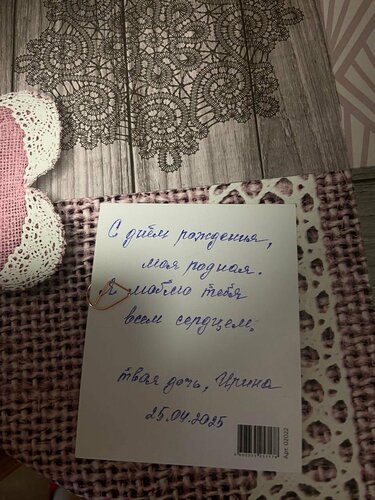 С днём рождения,
моя родная.
Я люблю тебя
всем сердцем,
твоя дочь, Ирина
25.04.2025
Арт. 02022